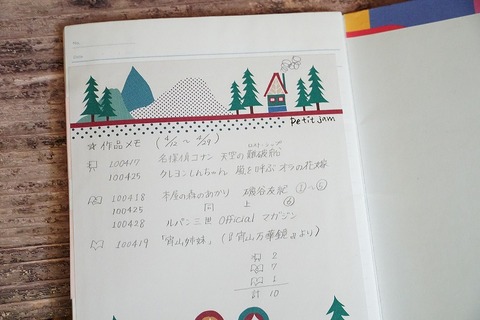 No.
Date
Petit jam
☆ 作品メモ (4/12 ~ 4/29)
ロスト・シップ
100417 名探偵コナン 天空の難破船
100425 クレヨンしんちゃん 嵐を呼ぶ オラの花嫁
100418 本屋の森のあかり 磯谷友紀 ①~⑤
100425 同 上 ⑥
100428 ルパン三世 Official マガジン
100419 「宵山姉妹」 (『宵山万華鏡』より)
2
7
1
計 10